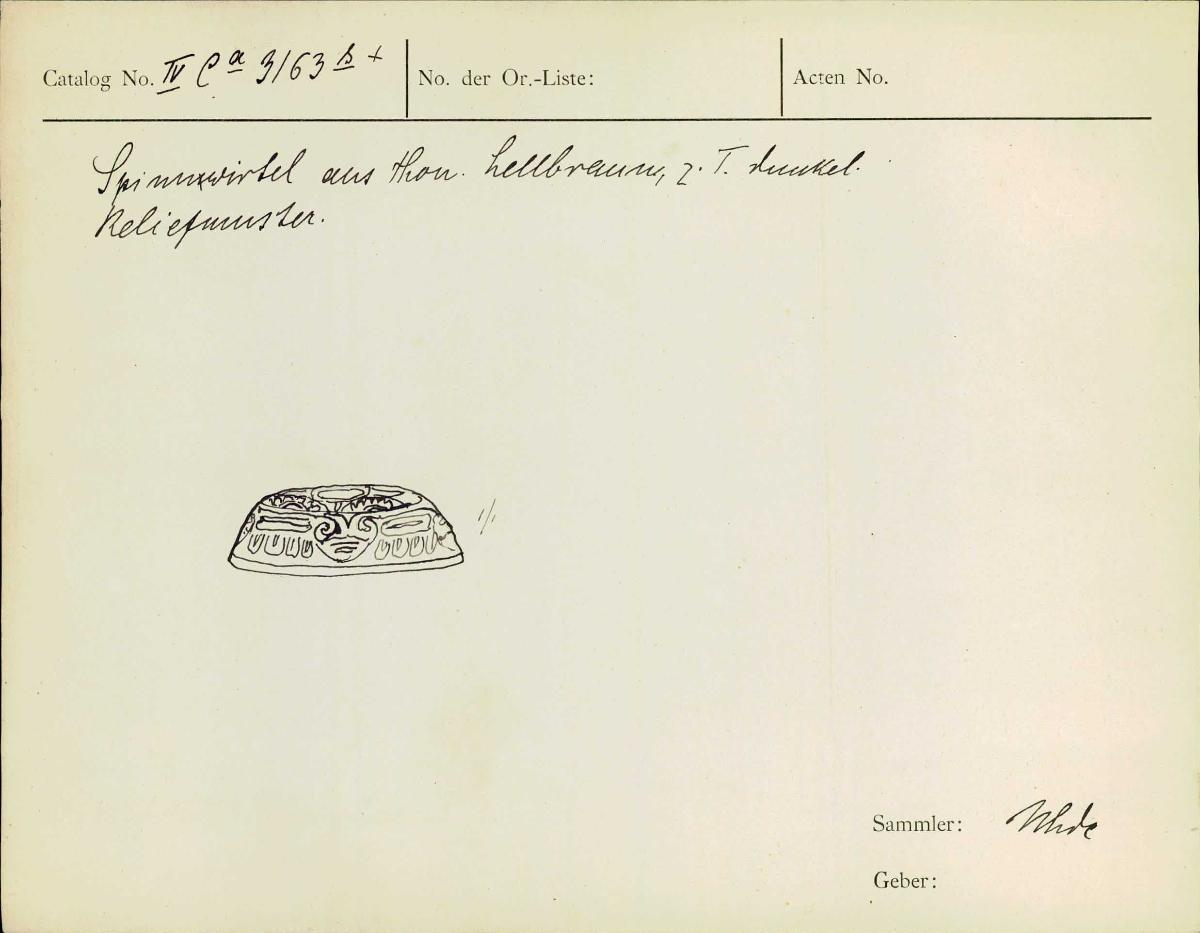 Catalog No. IV Ca 3163 b +
No. der Or.-Liste:
Acten No.
Spinnwirtel aus Thon. hellbraun, z. T. dunkel.
Reliefmuster.
1/1
Sammler: Uhde
Geber: